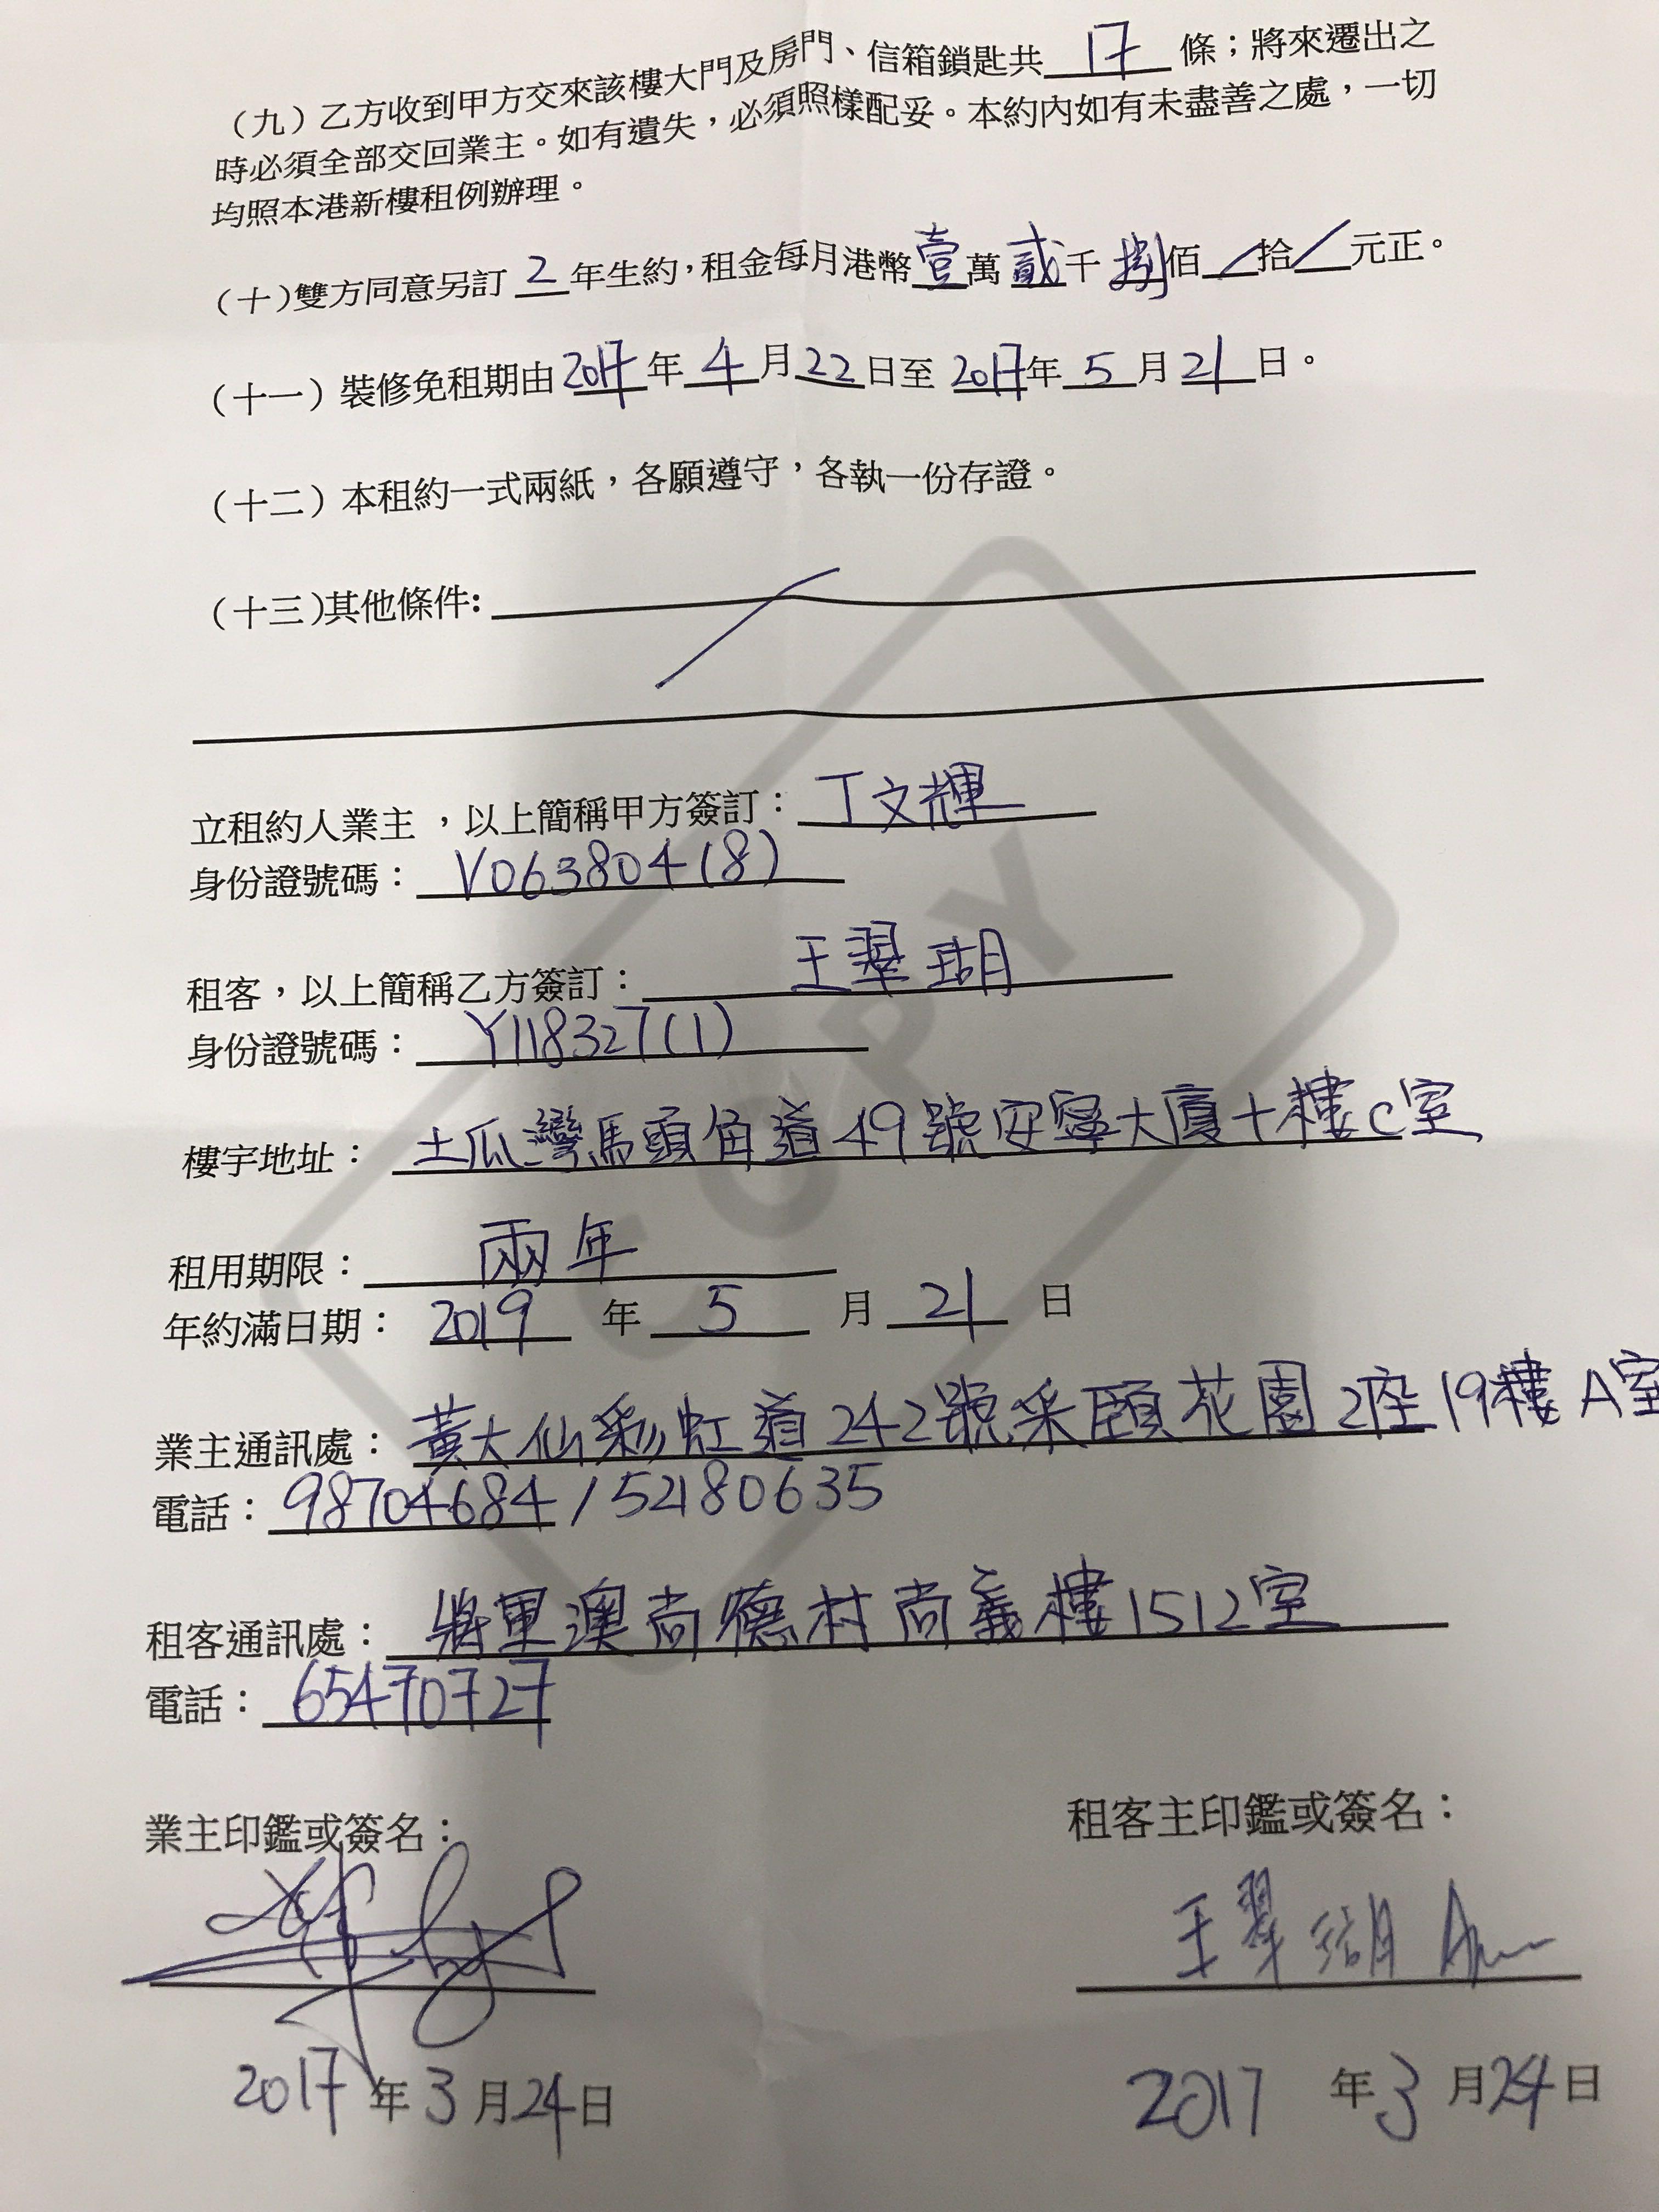 （九）乙方收到甲方交來該樓大門及房門、信箱鎖匙共 17 條；將來遷出之
時必須全部交回業主。如有遺失，必須照樣配妥。本約內如有未盡善之處，一切
均照本港新樓租例辦理。
（十）雙方同意另訂 2 年生約，租金每月港幣壹萬貳千捌佰／拾／元正。
（十一）裝修免租期由2017年4月22日至2017年5月21日。
（十二）本租約一式兩紙，各願遵守，各執一份存證。
（十三）其他條件:
立租約人業主，以上簡稱甲方簽訂：丁文輝
身份證號碼：V063804(8)
租客，以上簡稱乙方簽訂：王翠瑚
身份證號碼：Y118327(1)
樓宇地址：土瓜灣馬頭角道49號安寧大廈十樓C室
租用期限：兩年
年約滿日期：2019年5月21日
業主通訊處：黃大仙彩虹道242號采頤花園2座19樓A室
電話：98704684/52180635
租客通訊處：將軍澳尚德村尚義樓1512室
電話：65470727
業主印鑑或簽名：
租客主印鑑或簽名：
王翠瑚
2017年3月24日
2017年3月24日
COPY